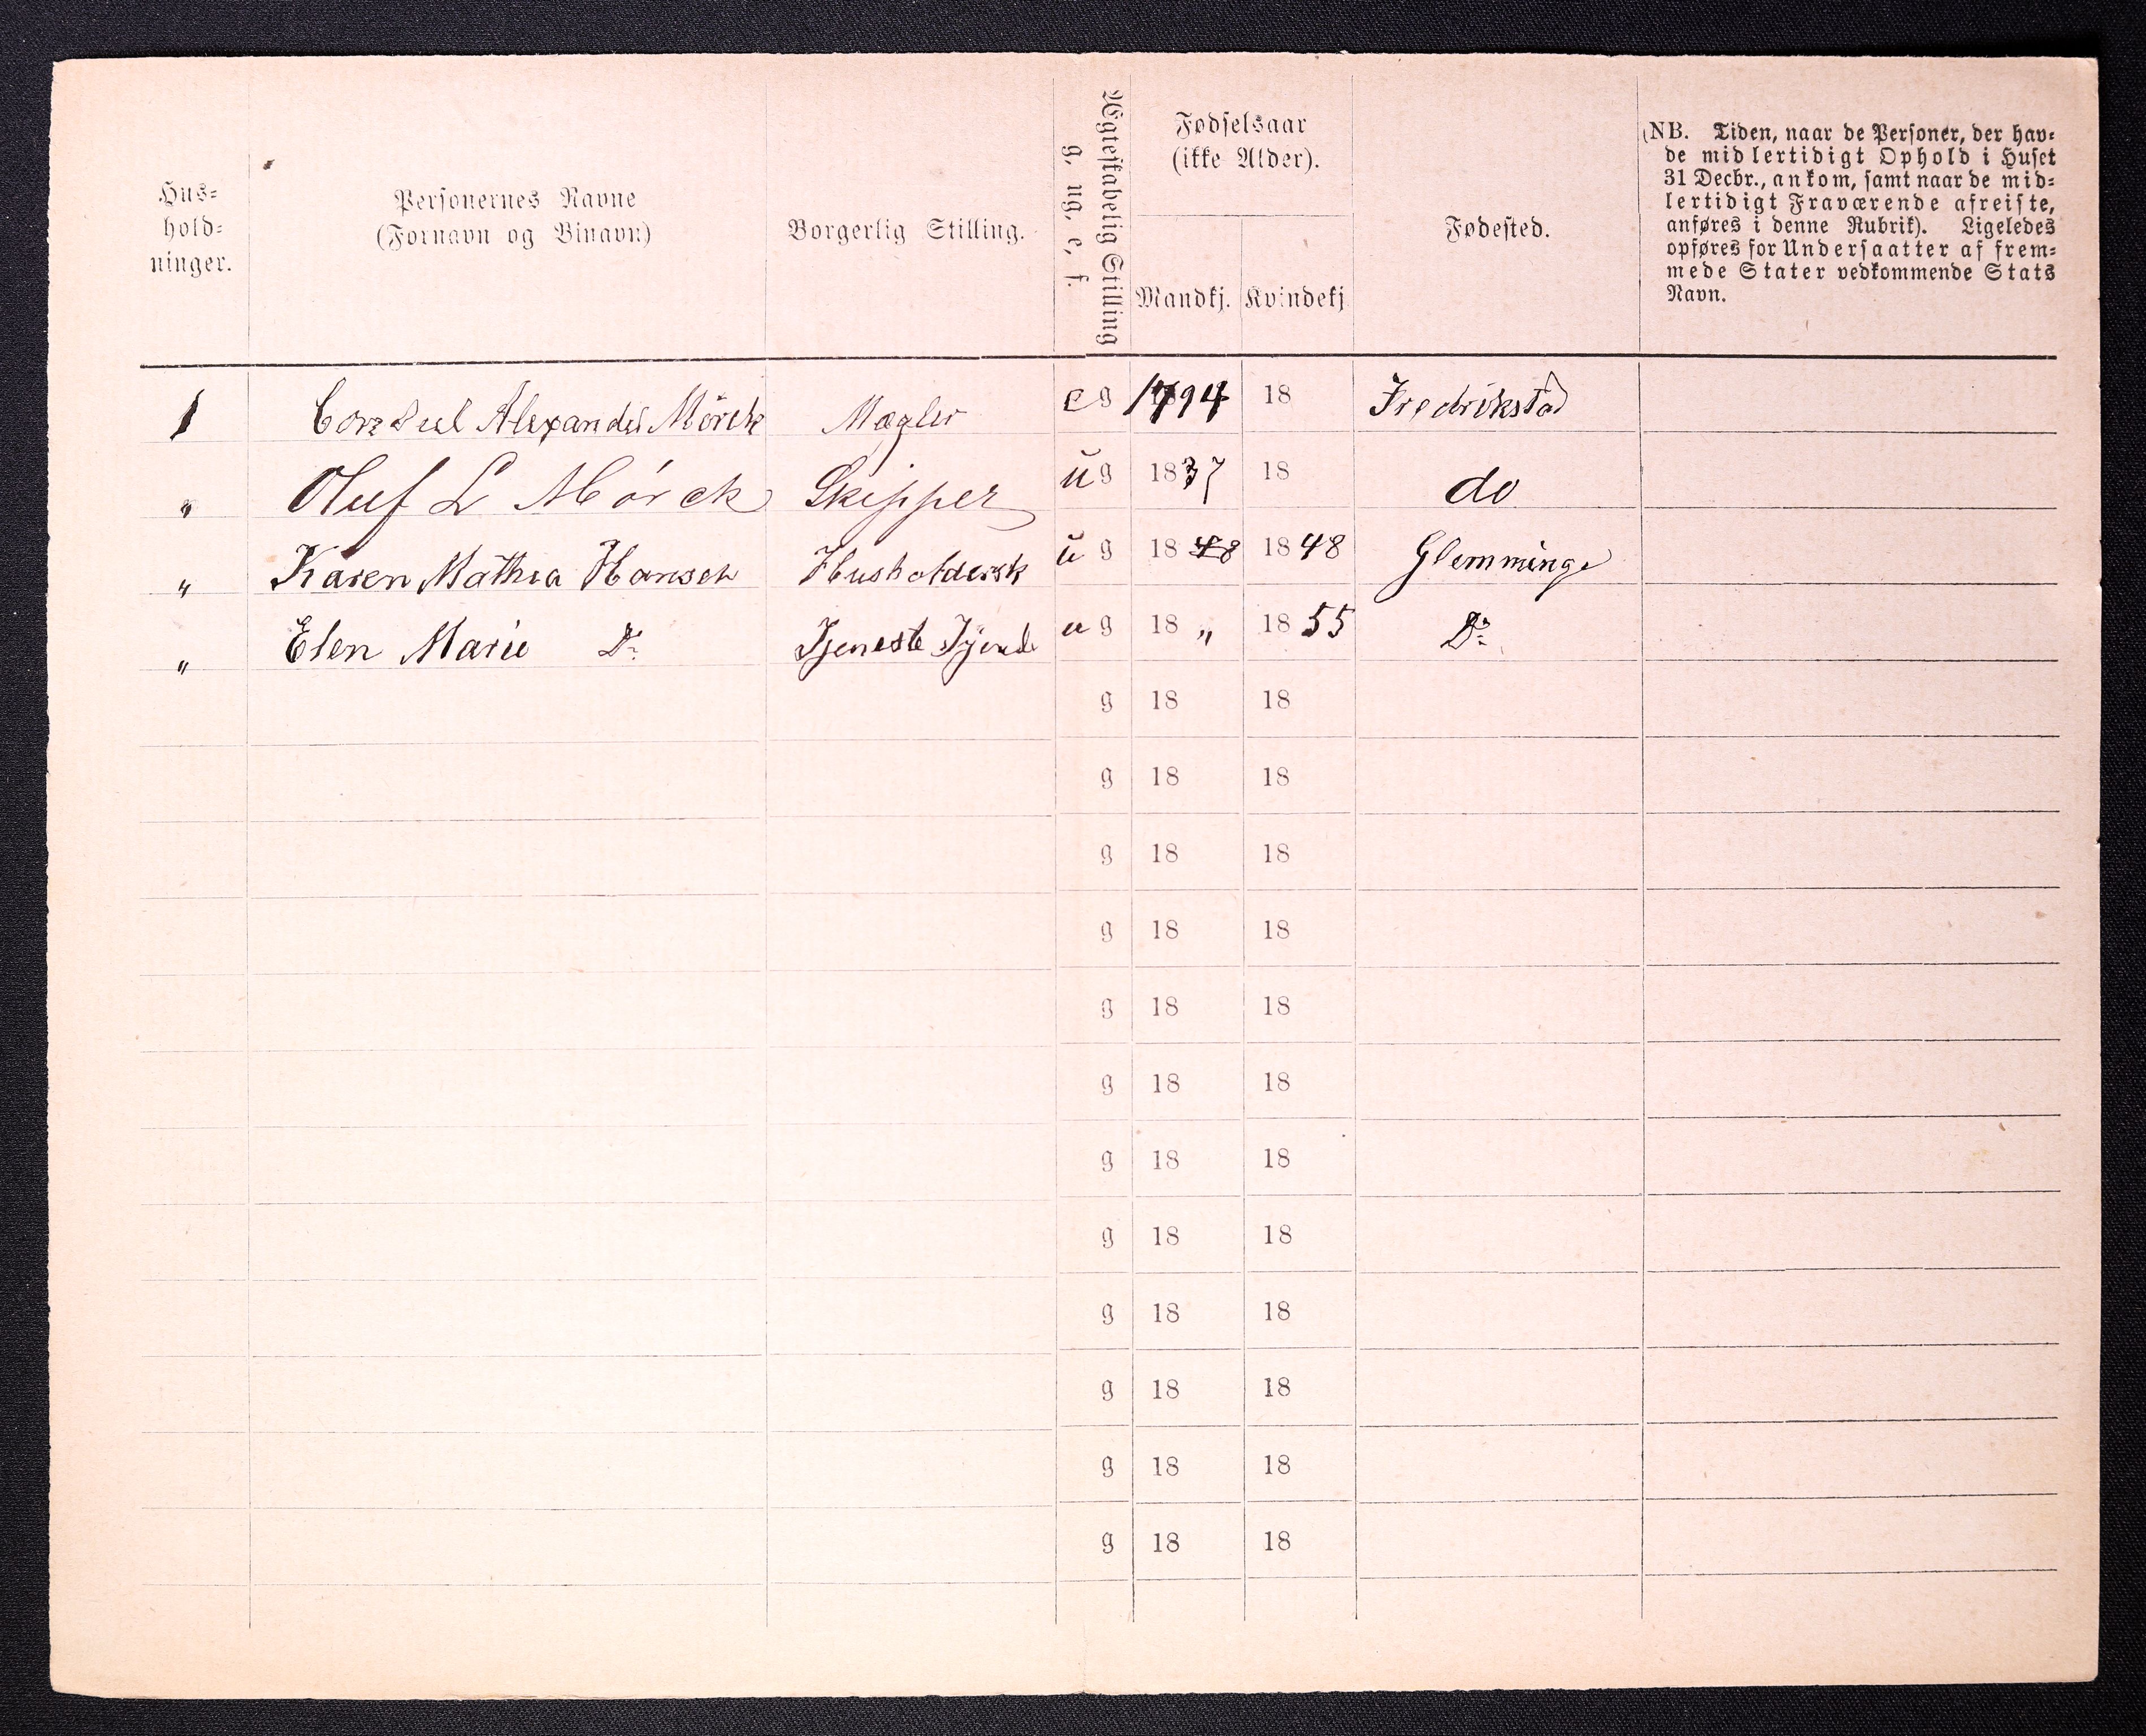 Hus-
hold-
ninger.
Personernes Navne
(Fornavn og Binavn)
Borgerlig Stilling.
Ægteskabelig Stilling
g. ug. e. f.
Fødselsaar
(ikke Alder).
Mandkj. Kvindekj
Fødested.
(NB. Tiden, naar de Personer, der hav-
de midlertidigt Ophold i Huset
31 Decbr., ankom, samt naar de mid-
lertidigt Fraværende afreiste,
anføres i denne Rubrik). Ligeledes
opføres for Undersaatter af frem-
mede Stater vedkommende Stats
Navn.
1 Consul Alexander Mörck Mægler e g 1794 18 Fredrikstad
" Oluf L Mörck Skipper u g 1837 18 do
" Karen Mathea Hansen Husholdersk u g 18 48 1848 Glemminge
" Elen Marie Do Tjeneste Tjende u g 18 " 1855 Do
g 18 18
g 18 18
g 18 18
g 18 18
g 18 18
g 18 18
g 18 18
g 18 18
g 18 18
g 18 18
g 18 18
g 18 18